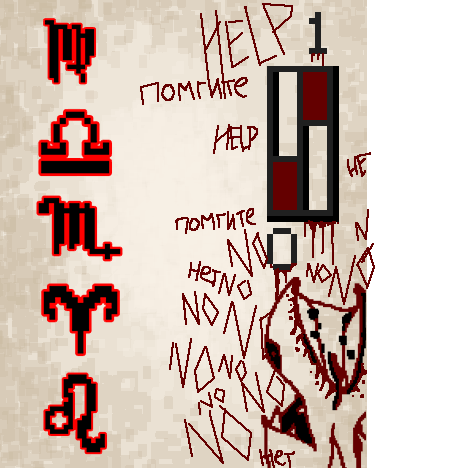 HELP
1
помгите
HELP
НЕ
помгите
NO
0
N
нет
NO
NO
NO
NO
N
NO
NO
NO
NO
NO
NO
N
нет